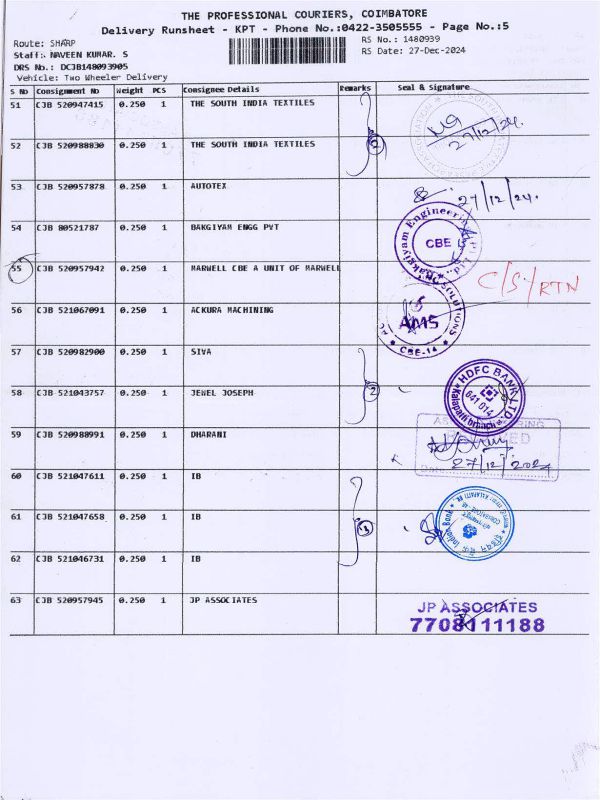 THE PROFESSIONAL COURIERS, COIMBATORE
Delivery Runsheet - KPT - Phone No.:0422-3505555 - Page No.:5
Route: SHARP
RS No.: 1480939
Staff:- NAVEEN KUMAR. S
RS Date: 27-Dec-2024
DRS No.: DCJB148093905
Vehicle: Two Wheeler Delivery
S No Consignment No Weight PCS Consignee Details Remarks Seal & Signature
51 CJB 520947415 0.250 1 THE SOUTH INDIA TEXTILES
27/12/24.
52 CJB 520988830 0.250 1 THE SOUTH INDIA TEXTILES
2
53 CJB 520957878 0.250 1 AUTOTEX
27/12/24.
54 CJB 80521787 0.250 1 BAKGIYAM ENGG PVT
Bakgiyam Engineering (P) Ltd.,
CBE
55 CJB 520957942 0.250 1 MARWELL CBE A UNIT OF MARWELL
C/S/RTN
56 CJB 521067091 0.250 1 ACKURA MACHINING
SOLUTIONS
AMS
CBE-14
57 CJB 520982900 0.250 1 SIVA
58 CJB 521043757 0.250 1 JEWEL JOSEPH
2
HDFC BANK LTD.
641 014
Kalapatti branch
59 CJB 520988991 0.250 1 DHARANI
27/12/2024
60 CJB 521047611 0.250 1 IB
61 CJB 521047658 0.250 1 IB
Indian Bank
62 CJB 521046731 0.250 1 IB
63 CJB 520957945 0.250 1 JP ASSOCIATES
JP ASSOCIATES
7708111188